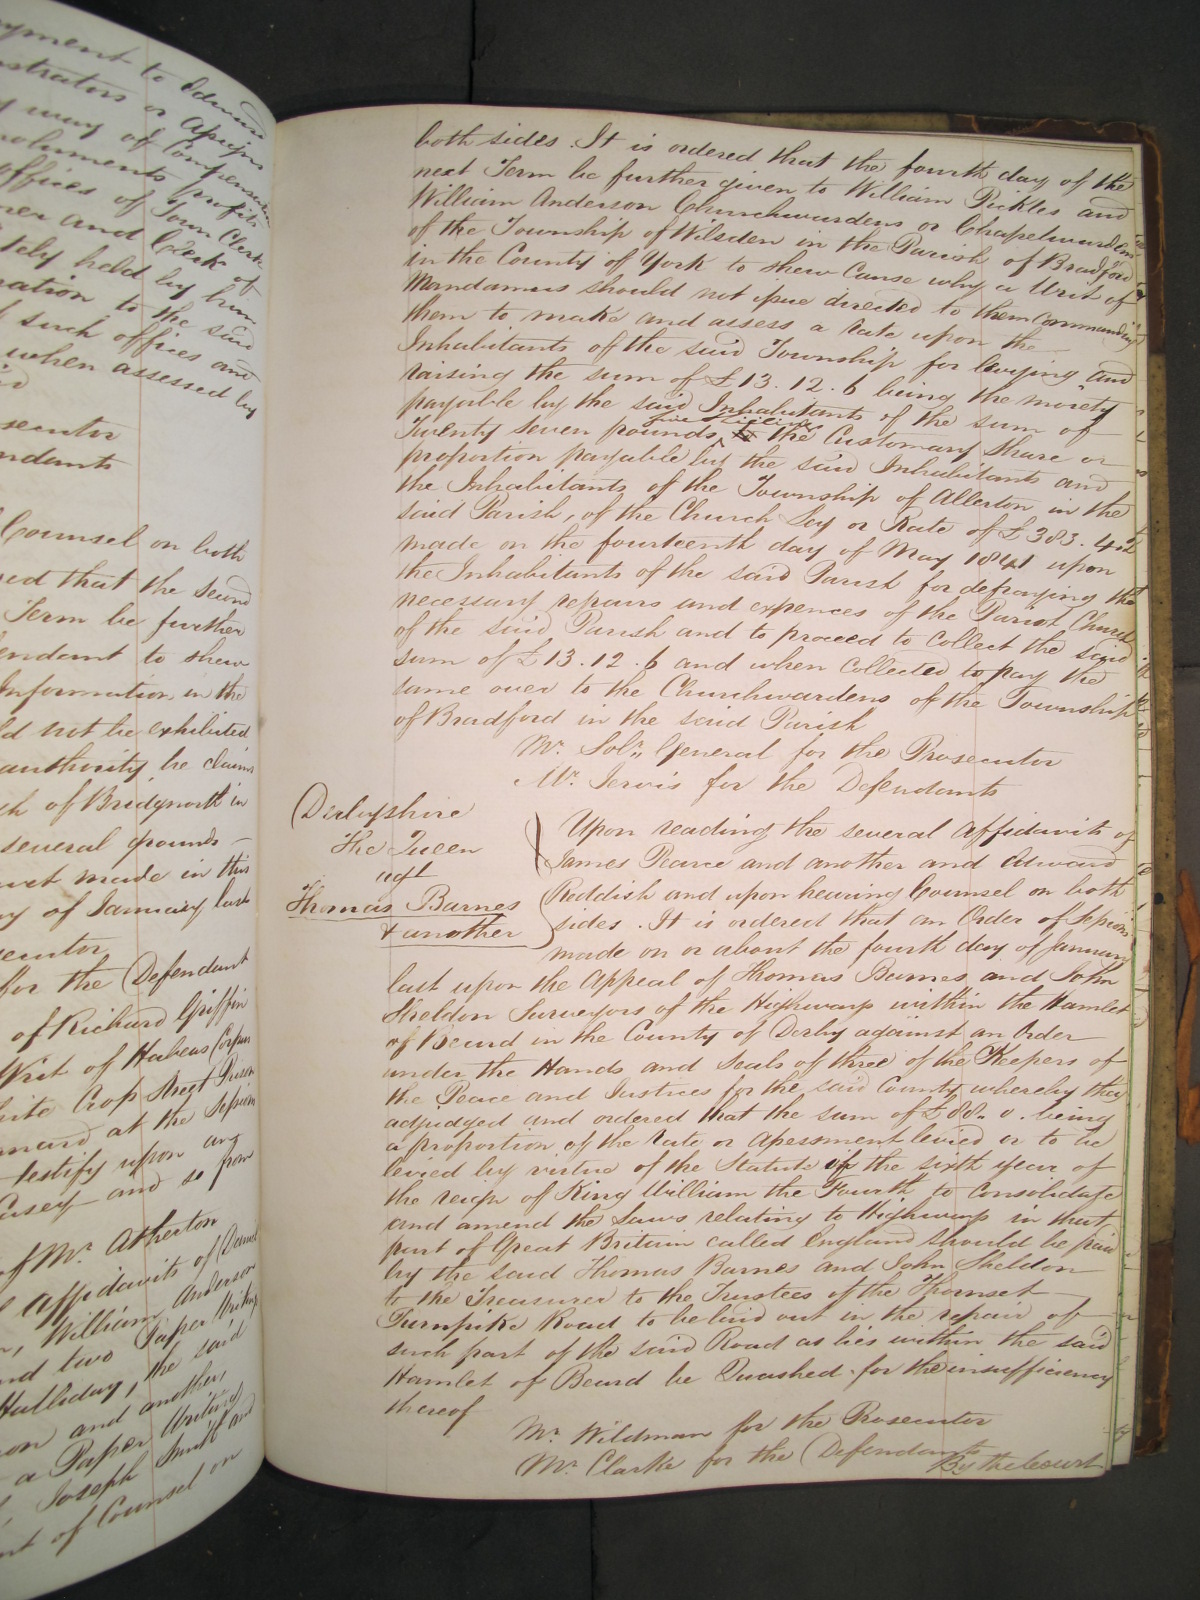 yment to Edward
strators or Assigns
y way of Compensa
moluments profits
offices of Town Clerk
ner and Clerk of
tely held by him
ration to the said
f such offices and
when assessed by
id
secutor
ndants
Counsel on both
red that the second
Term be further
endant to shew
Information in the
ld not be exhibited
authority he claims
gh of Bridgnorth in
several grounds
avit made in this
ay of January last
secutor
for the Defendant
of Richard Griffin
Writ of Habeas Corpus
hite Cross Street Prison
mand at the Session
testify upon any
Casey and so from
of Mr. Atherton
l affidavits of Daniel
n, William Anderson
nd two Paper Writings
Halliday, the said
son and another,
a Paper Writing
, Joseph Smith and
nt of Counsel on
both sides. It is ordered that the fourth day of the
next Term be further given to William Pickles and
William Anderson Churchwardens or Chapelwardens
of the Township of Wilsden in the Parish of Bradford
in the County of York to shew Cause why a Writ of
Mandamus should not issue directed to them commanding
them to make and assess a rate upon the
Inhabitants of the said Township for levying and
raising the sum of £13.12.6 being the moiety
payable by the said Inhabitants of the sum of
five shillings
Twenty seven pounds the Customary Share or
proportion payable by the said Inhabitants and
the Inhabitants of the Township of Allerton in the
said Parish, of the Church Ley or Rate of £383.4.2
made on the fourteenth day of May 1841 upon
the Inhabitants of the said Parish for defraying the
necessary repairs and expences of the Parish Church
of the said Parish and to proceed to collect the said
sum of £13.12.6 and when collected to pay the
same over to the Churchwardens of the Township
of Bradford in the said Parish
Mr. Solr. General for the Prosecutor
Mr. Jervis for the Defendants
Derbyshire
The Queen
agt
Thomas Barnes
& another
Upon reading the several Affidavits of
James Pearce and another and Edward
Reddish and upon hearing Counsel on both
sides. It is ordered that an Order of Sessions
made on or about the fourth day of January
last upon the Appeal of Thomas Barnes and John
Sheldon Surveyors of the Highways within the Hamlet
of Beard in the County of Derby against an Order
under the Hands and Seals of three of the Keepers of
the Peace and Justices for the said County whereby they
adjudged and ordered that the sum of £88.. 0. being
a proportion of the rate or assessment levied or to be
levied by virtue of the Statute of the sixth year of
the reign of King William the Fourth to consolidate
and amend the Laws relating to Highways in that
part of Great Britain called England should be paid
by the said Thomas Barnes and John Sheldon
to the Treasurer to the Trustees of the Thornset
Turnpike Road to be laid out in the repair of
such part of the said Road as lies within the said
Hamlet of Beard be Quashed for the insufficiency
thereof
Mr. Wildman for the Prosecutor
Mr. Clarke for the Defendants
By the Court